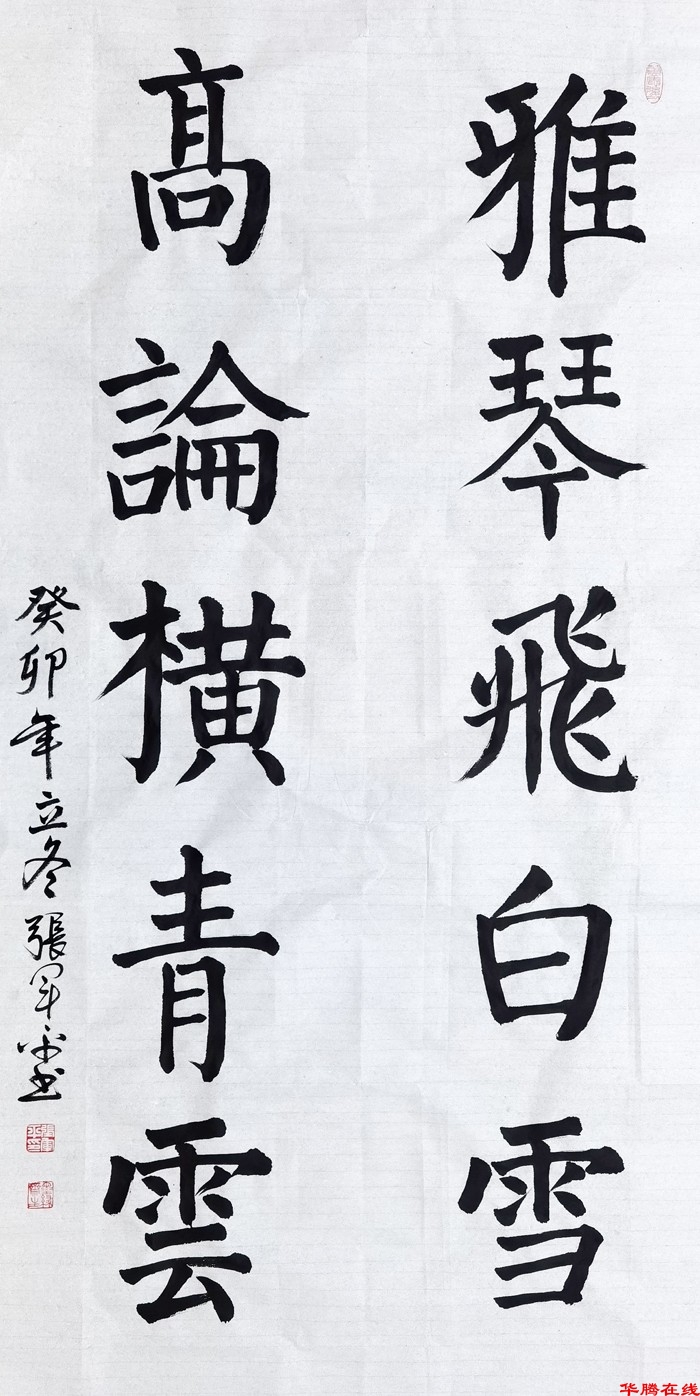 雅琴飛白雪
高論橫青雲
癸卯年立冬張军平书
华腾在线